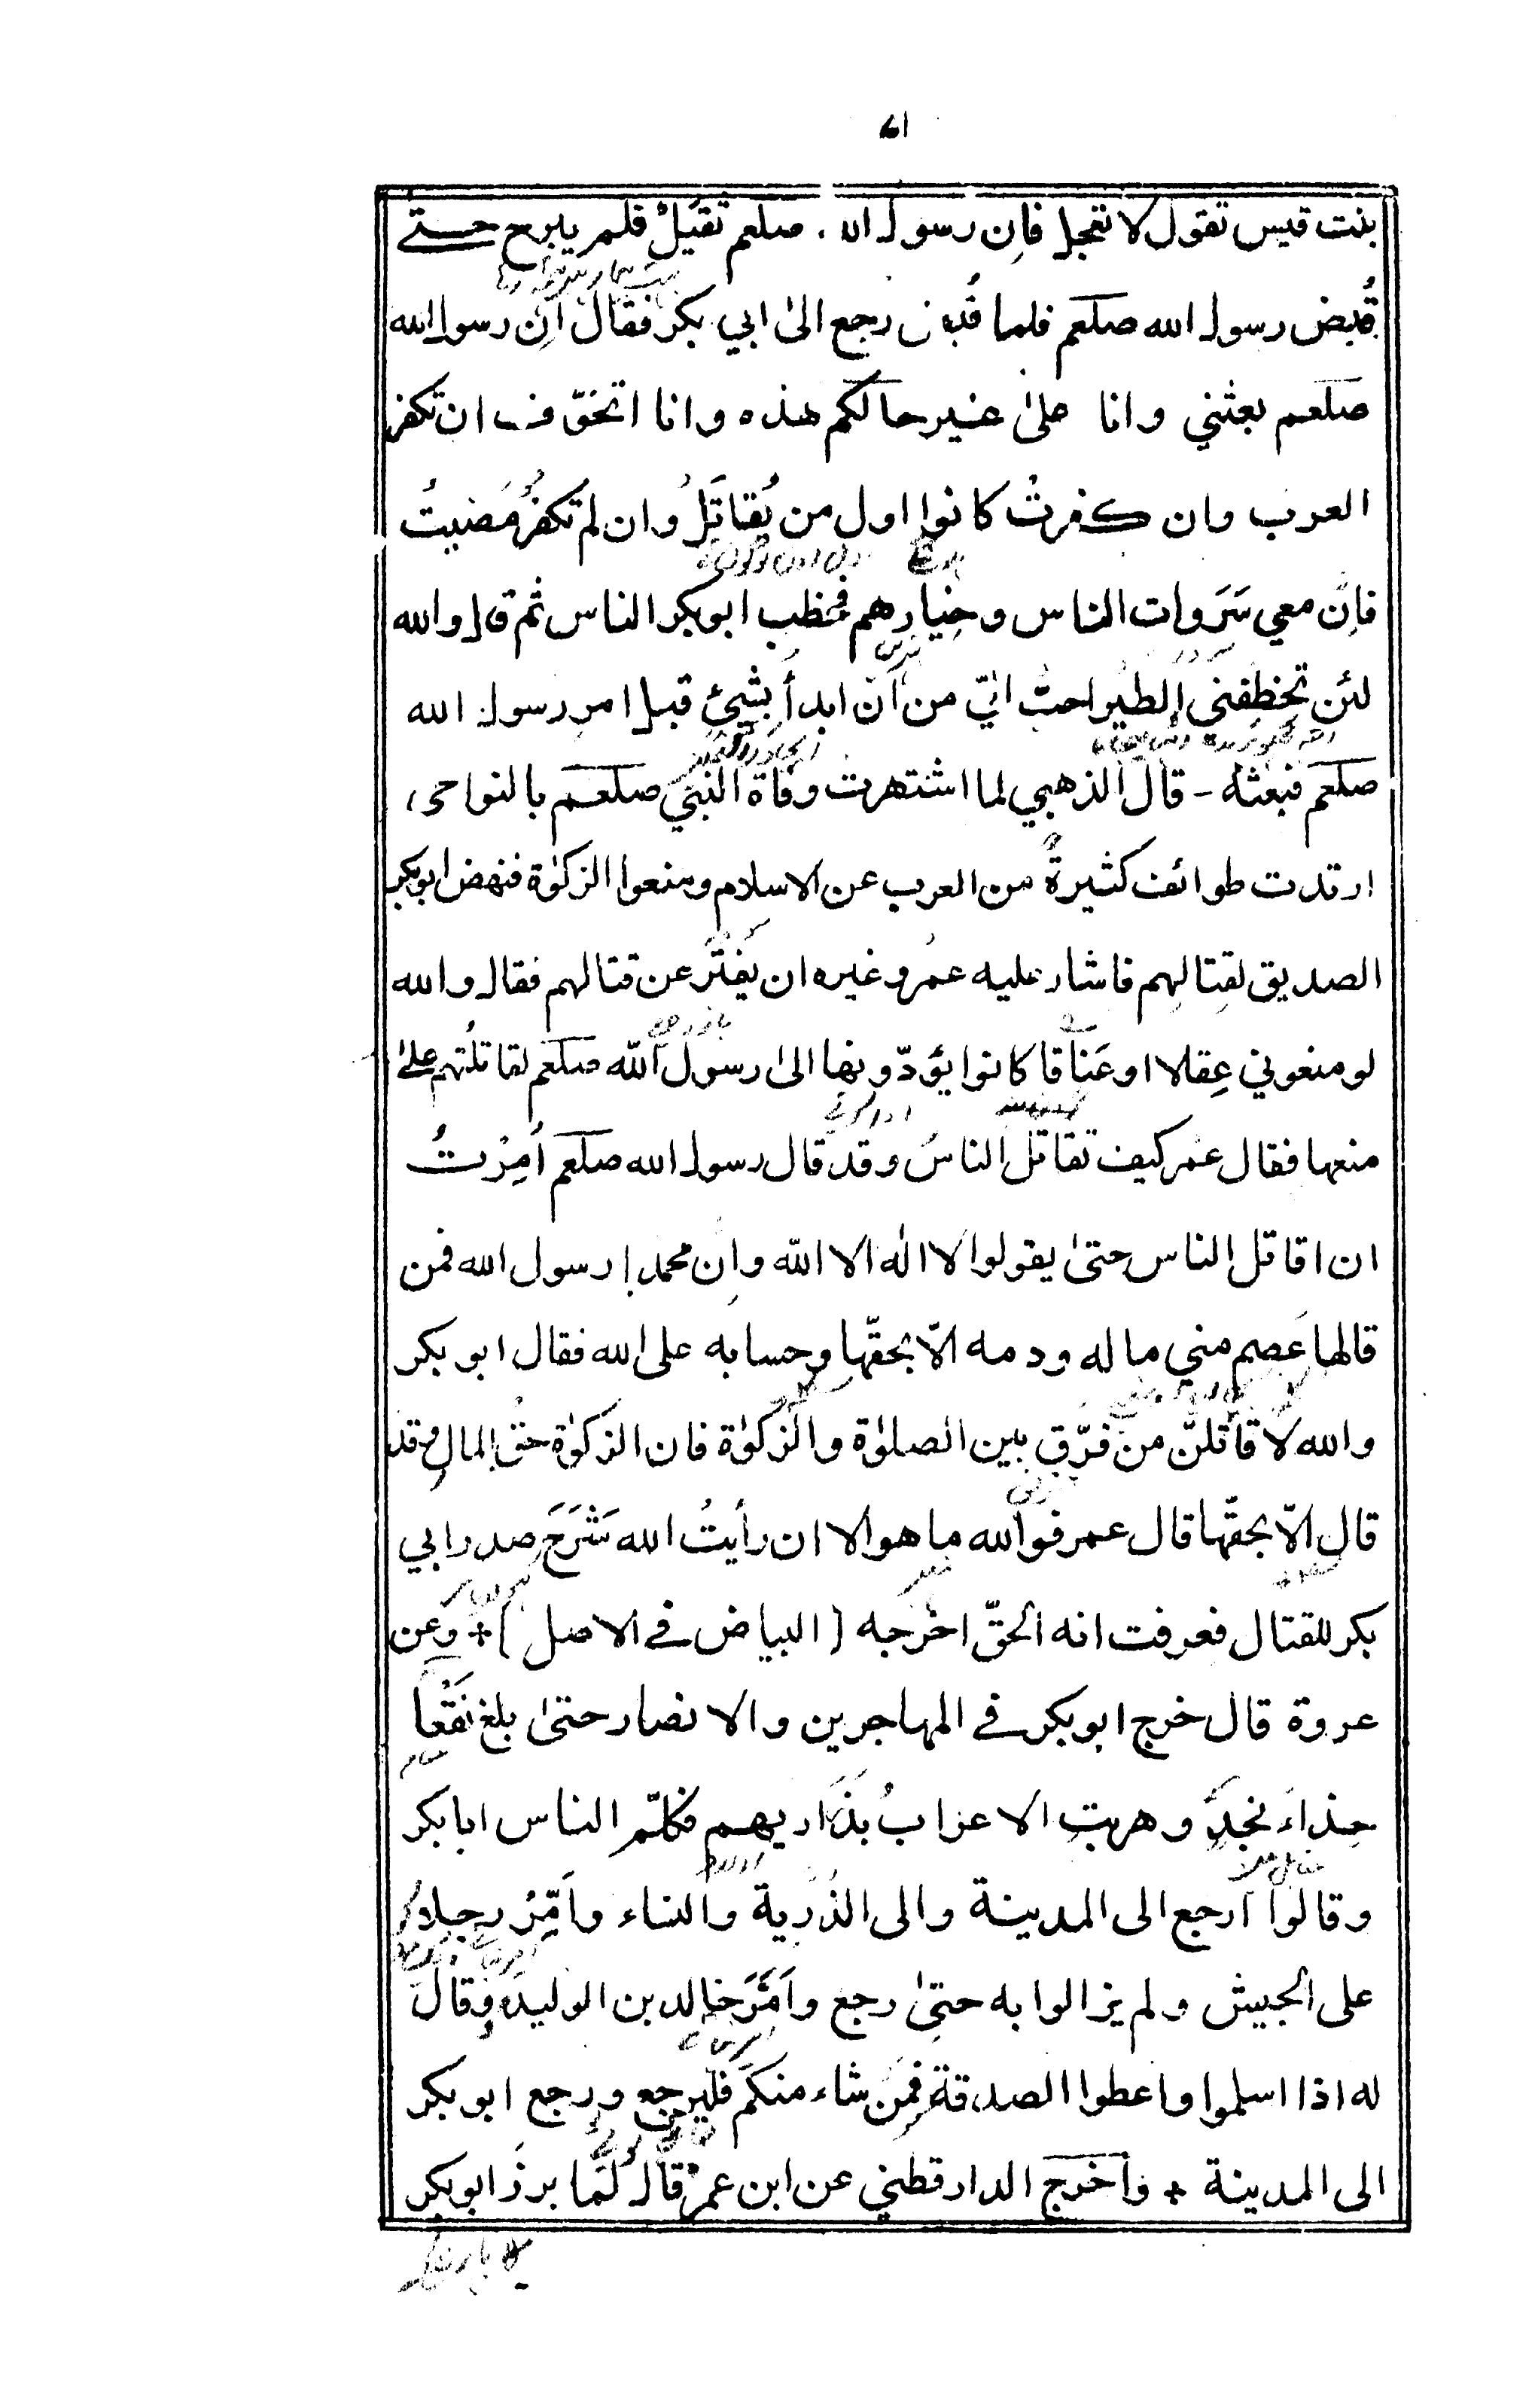 ٧١
بنت قيس تقول لا تعجل فاِن رسول الله صلعم ثقيلٌ فلم يبرح حتى
قُبض رسول الله صلعم فلما قُبض رجع الىٰ ابي بكر فقال اِن رسول الله
صلعم بعثني وانا علىٰ غير حالكم هذه وانا اتخوّف ان تكفر
العرب وان كفرتْ كانوا اول من يُقاتَلُ وان لم تكفرْ مضيتُ
فاِنّ معي سَرَوات الناس وخيارهم فخطب ابو بكر الناس ثم قال والله
لئن تخطِفني الطير احبّ اليّ من اَن ابدأ بشيئ قبل امر رسول الله
صلعم فبعثه - قال الذهبي لما اشتهرت وفاة النبي صلعم بالنواحى
ارتدت طوائف كثيرةٌ من العرب عن الاسلام ومنعوا الزكوٰة فنهض ابوبكر
الصديق لقتالِهم فاشار عليه عمرُ وغيره ان يفتُر عن قتالهم فقال والله
لو منعوني عِقالا او عَناقا كانوا يؤدّونها الىٰ رسول الله صلعم لقاتلتُهم علىٰ
منعها فقال عمر كيف تقاتل الناسَ وقد قال رسول الله صلعم اُمِرْتُ
ان اقاتل الناس حتىٰ يقولوا لا الٰه الا الله واِن محمدا رسول الله فمن
قالها عَصِم مني ماله ودمه الّا بحقّها وحسابه على الله فقال ابو بكر
والله لاقاتلنّ من فرّق بين الصلوٰة والزكوٰة فان الزكوٰة حقُ المال وقد
قال الّا بحقّها قال عمر فوالله ما هو الا ان رأيتُ الله شَرَحَ صدر ابي
بكر للقتال فعرفت انه الحقّ اخرجه (البياض في الاصل) * وعن
عروة قال خرج ابو بكر في المهاجرين والانصار حتىٰ بلغ نَقْعا
حِذاءَ نجدٍ وهربت الاعرابُ بذَراريهم فكلّم الناس ابا بكر
وقالوا ارجع الى المدينة والى الذُرية والنساء واَمِّرْ رجلا
على الجيش ولم يزالوا به حتىٰ رجع واَمَّرَ خالد بن الوليد وقال
له اذا اسلموا واعطوا الصدقة فمن شاء منكم فليرجع ورجع ابو بكر
الى المدينة * واَخرج الدارقطني عن ابن عمر قال لمّا برز ابوبكر